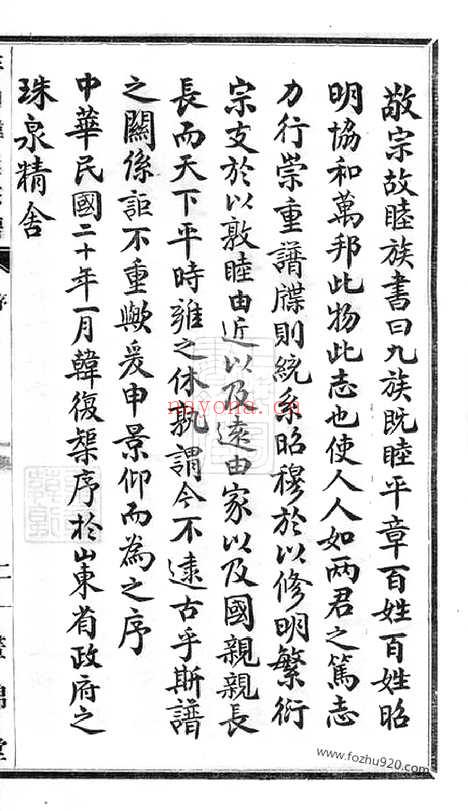 敬宗故睦族書曰九族既睦平章百姓百姓昭
明協和萬邦此物此志也使人人如两君之篤志
力行崇重譜牒則統系昭穆於以修明繁衍
宗支於以敦睦由近以及遠由家以及國親親長
長而天下平時雍之休孰謂今不逮古乎斯譜
之關係詎不重歟爰申景仰而為之序
中華民國二十年一月韓復榘序於山東省政府之
珠泉精舍
序
二
堂
nayona.cn
www.fozhu920.com